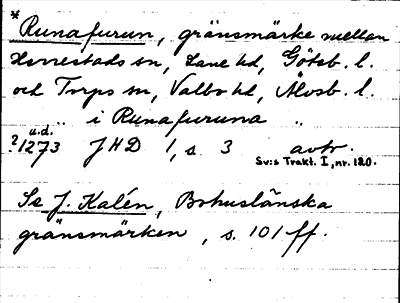 * Runafurun, gränsmärke mellan
Herrestads sn, Lane hd, Göteb. l.
och Torps sn, Valbo hd, Älvsb. l.
" i Runafuruna "
u.d.
?1273 JHD 1, s. 3 avtr.
Sv:s Trakt. I, nr. 120.
Se J. Kalén, Bohuslänska
gränsmärken, s. 101 ff.